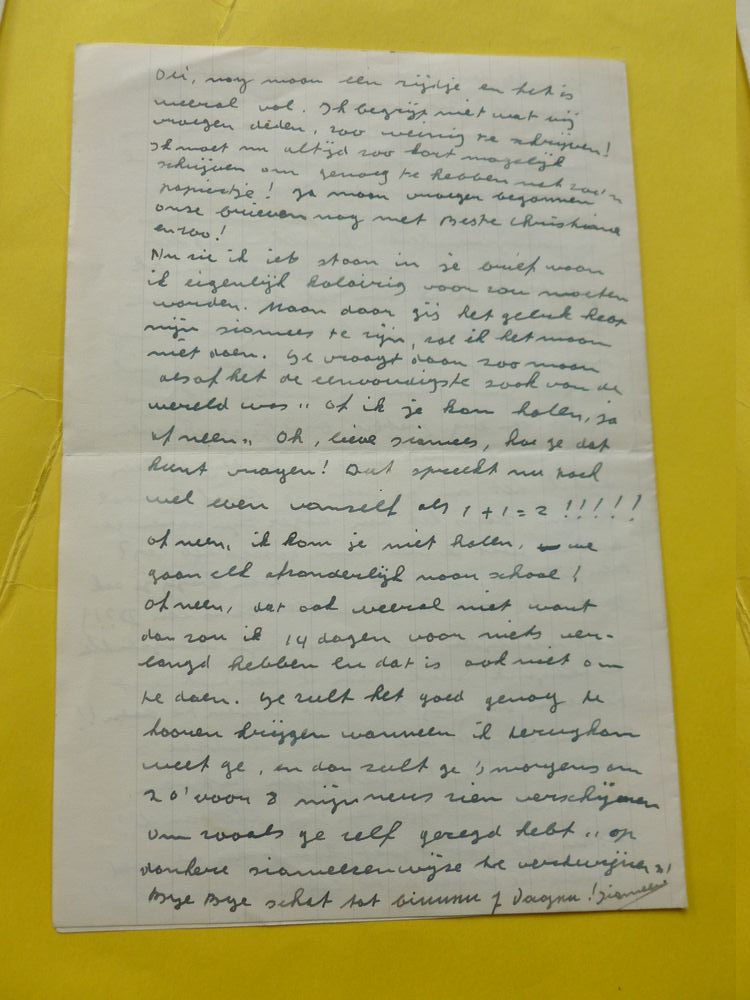 Oei, nog maar één zijdje en het is
weeral vol. Ik begrijp niet wat wij
vroeger deden, zoo weinig te schrijven!
Ik moet nu altijd zoo kort mogelijk
schrijven om genoeg te hebben met zoo'n
papiertje! Ja maar vroeger begonnen
onze brieven nog met Beste Christiane
en zoo!
Nu zie ik iets staan in je brief waar
ik eigenlijk kolairig voor zou moeten
worden. Maar daar gij het geluk hebt
mijn siamees te zijn, zal ik het maar
niet doen. Ge vraagt daar zoo maar
alsof het de eenvoudigste zaak van de
wereld was ,, Of ik je kom halen, ja
of neen ,, Oh, lieve siamees, hoe ge dat
kunt vragen! Dat spreekt nu toch
wel even vanzelf als 1 + 1 = 2 !!!!!
Of neen, ik kom je niet halen, we
gaan elk afzonderlijk naar school!
Of neen, dat ook weeral niet want
dan zou ik 14 dagen voor niets ver-
langd hebben en dat is ook niet om
te doen. Ge zult het goed genoeg te
hooren krijgen wanneer ik terugkom
weet ge, en dan zult ge 's morgens om
20' voor 8 mijn neus zien verschijnen
om zooals ge zelf gezegd hebt ,, op
donkere siameezenwijze te verdwijnen"!
Bye Bye schat tot binnen 7 dagen! Siamees